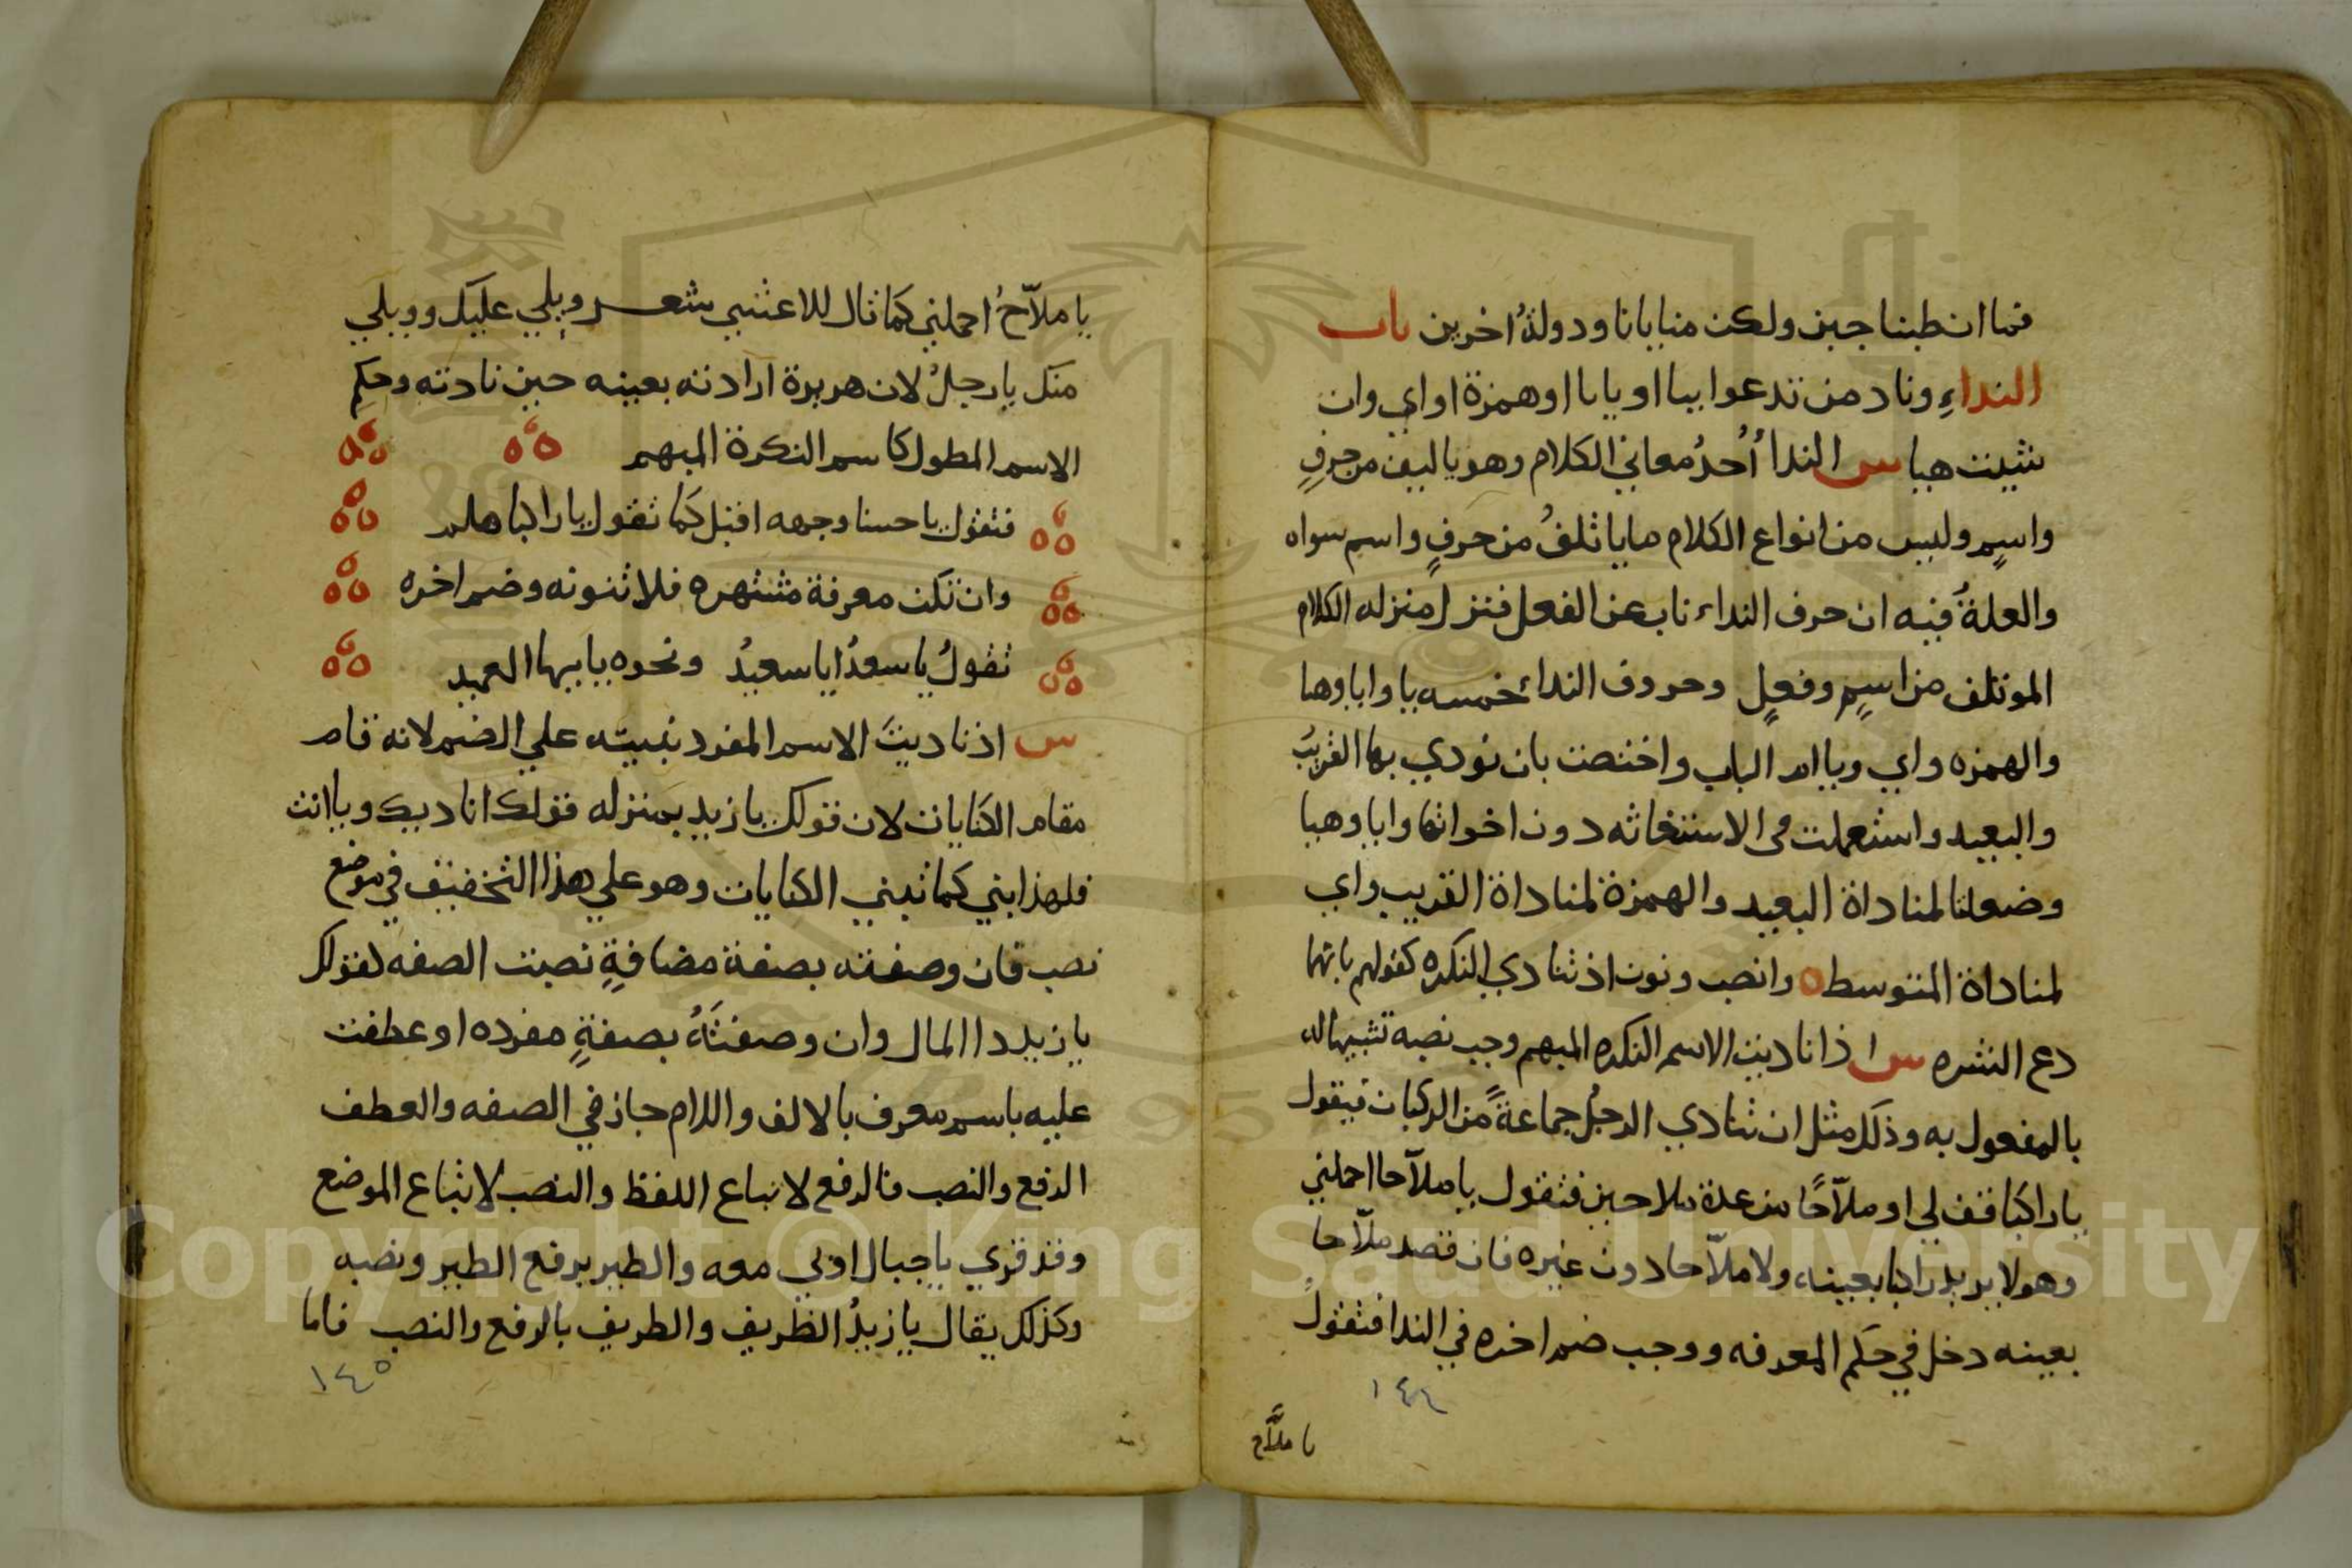 فما ان طبنا جبن ولكن منايانا ودولةُ اخرين باب
النداءِ وناد من تدعوا بيا او بايا او همزة او اي وان
شيت هيا س الندا أُحدُ معاني الكلام وهو ياليف من حرفٍ
واسمٍ وليس من انواع الكلام ما ياتلفُ من حرفٍ واسم سواه
والعلةُ فيه ان حرف النداء ناب عن الفعل فنزل منزله الكلام
الموتلف من اسمٍ وفعلٍ وحروف النداء خمسه يا وايا وهيا
والهمزه واي ويا ام الباب واختصت بان نودي بها القريبُ
والبعيد واستعملت في الاستغاثه دون اخواتها وايا وهيا
وضعلتا لمناداة البعيد والهمزة لمناداة القريب واي
لمناداة المتوسطه وانصب ونون اذ تنادي النكره كقولهم يا نهما
دع الشره س اذا ناديت الاسم النكره المبهم وجب نصبه تشبيها له
بالمفعول به وذلك مثل ان تنادي الرجلُ جماعةً من الركبان فيقول
يا راكبا قف لي او ملّاحًا من عدة ملاحين فتقول يا ملّاحا احملني
وهو لا يريد راكبا بعينه، ولا ملّاحا دون غيره فان قصد ملّاحا
بعينه دخل في حكم المعرفه ووجب ضم اخره في الندا فتقول
١٤٤
يا ملّاح
يا ملّاحُ احملني كما قال للاعشي شعر ويلي عليك وويلي
منك يا رجلُ لان هريرة ارادته بعينه حين نادته وحكم
الاسم المطول كاسم النكرة المبهم
فتقول يا حسنا وجهه اقبل كما تقول يا راكبا هلم
وان تكن معرفة مشتهره فلا تنونه وضم اخره
تقولُ يا سعدُ ايا سعيدُ ونحوه يا ايها العميد
س اذ ناديتَ الاسم المفرد بنيته علي الضم لانه قام
مقام الكنايات لان قولك يا زيد بمنزله قولك اناديك ويا انت
فلهذا بني كما تبني الكنايات وهو علي هذا التخفيف في موضع
نصب فان وصفته بصفة مضافةٍ نصبت الصفه لقولك
يا زيد دا المال وان وصفتَهُ بصفةٍ مفرده او عطفت
عليه باسم معرف بالالف واللام جاز في الصفه والعطف
الرفع والنصب فالرفع لاتباع اللفظ والنصب لاتباع الموضع
وقد قري يا جبال اوبي معه والطير برفع الطير ونصبه
وكذلك يقال يا زيدُ الظريف والظريف بالرفع والنصب فاما
١٤٥
Copyright © King Saud University